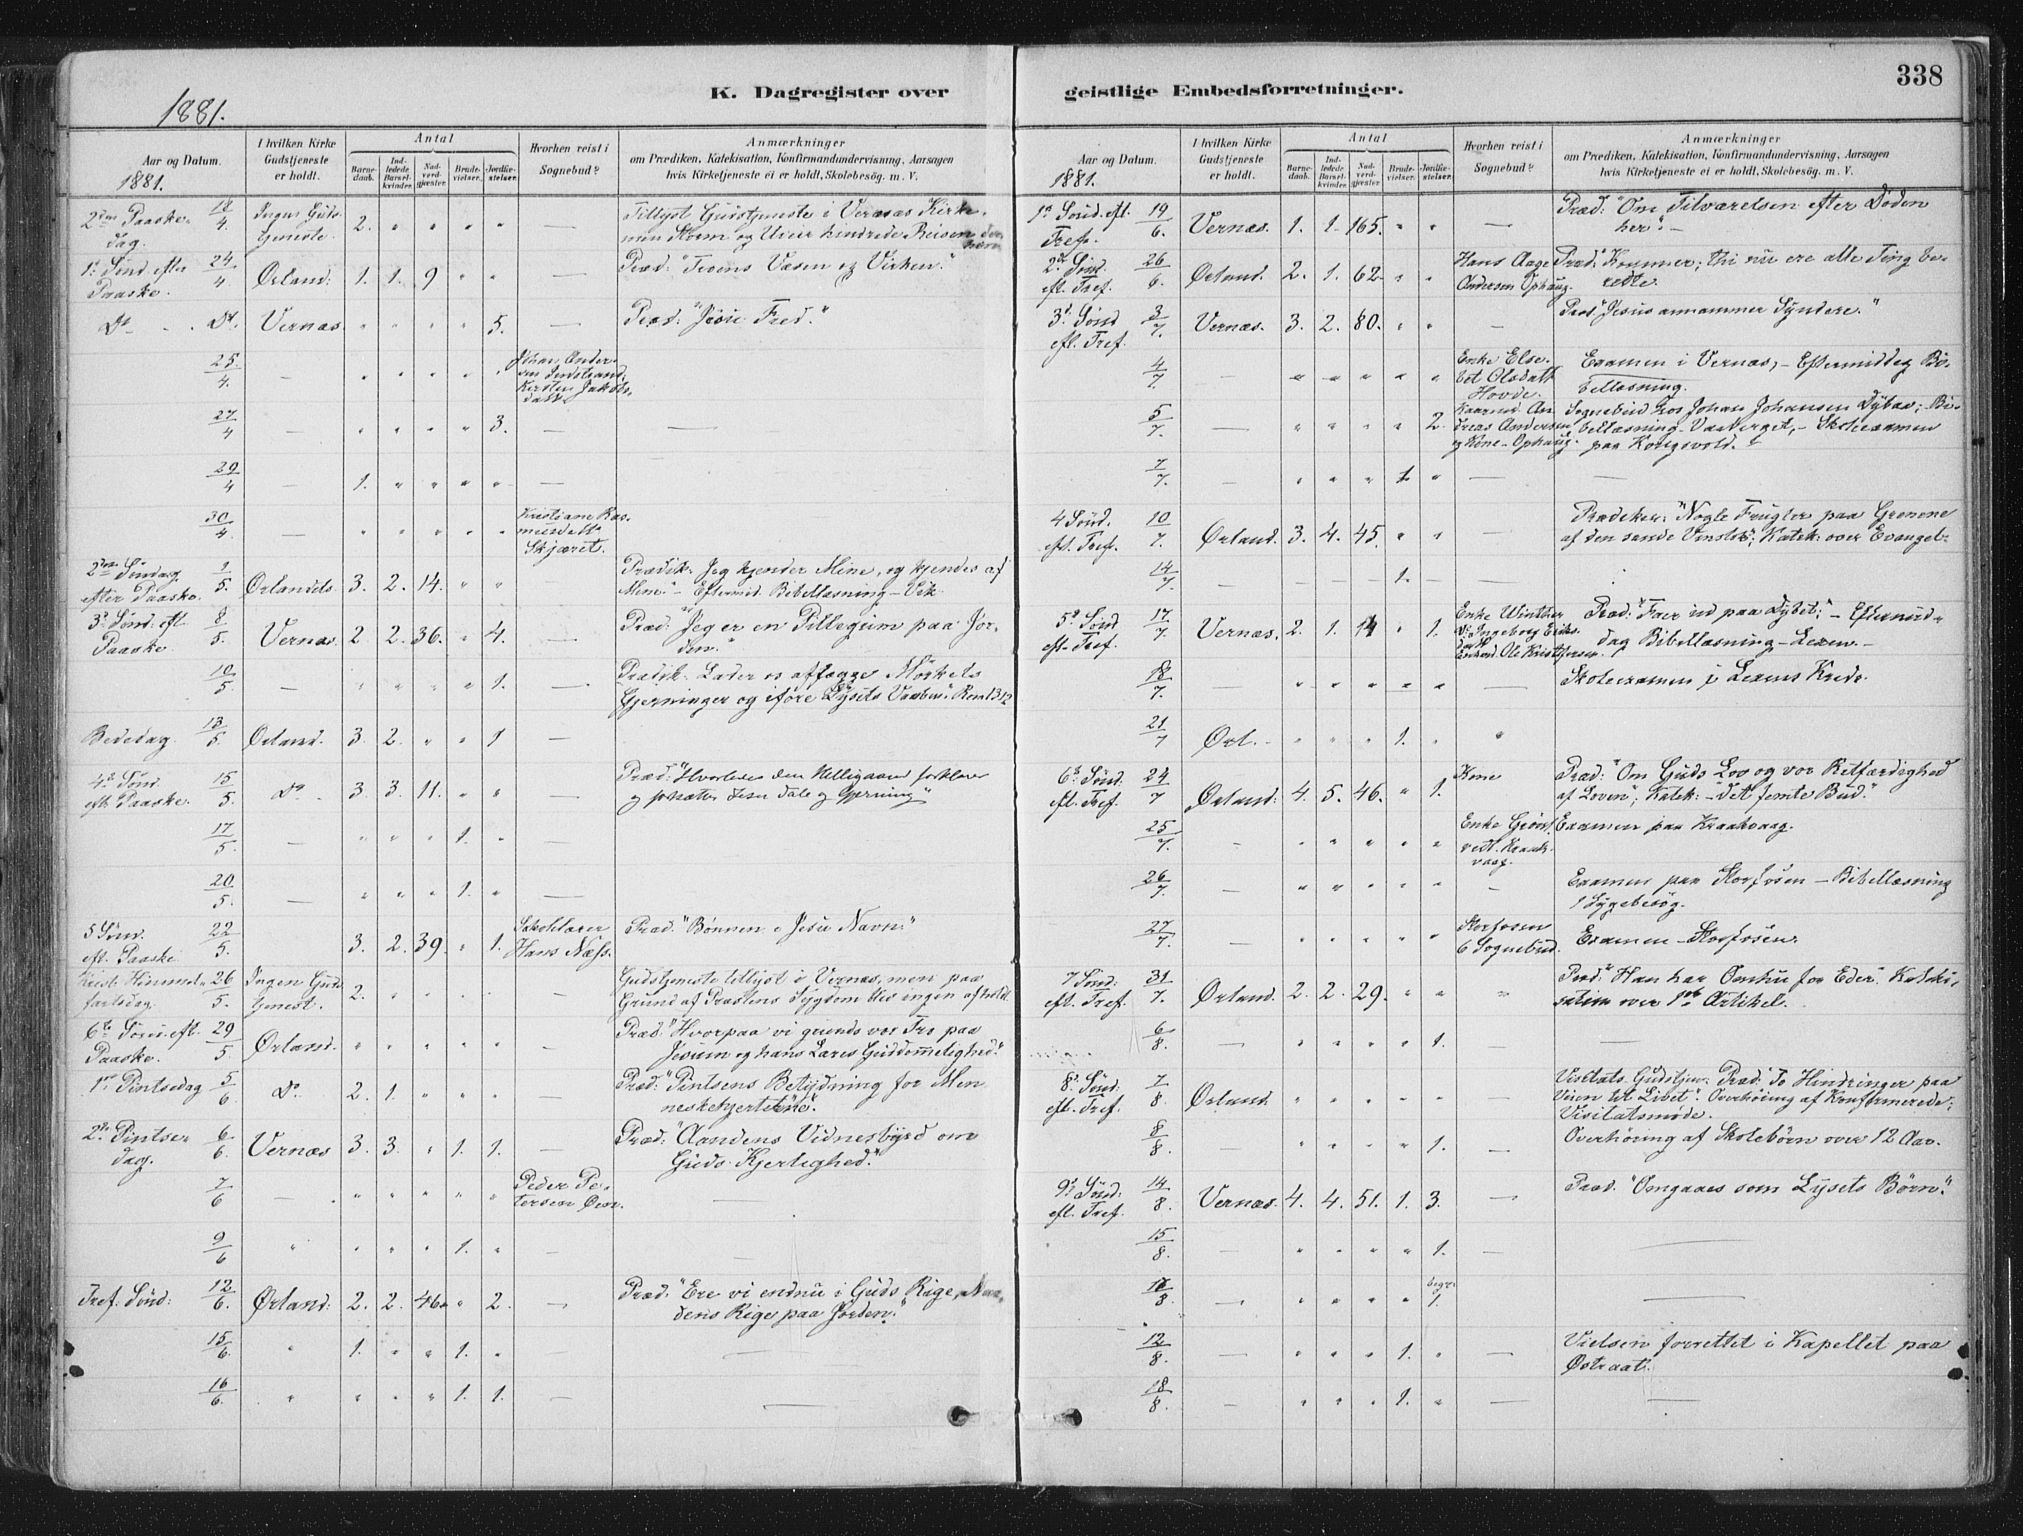 338
K. Dagregister over geistlige Embedsforretninger.
1881.
Aar og Datum.
1881.
I hvilken Kirke Gudstjeneste er holdt.
Antal
Barnedaab.
Indledede Barselkvinder.
Nadverdgjæster
Brudevielser.
Jordfæstelser.
Hvorhen reist i Sognebud?
Anmærkninger
om Prædiken, Katekisation, Konfirmandundervisning, Aarsagen
hvis Kirketjeneste ei er holdt, Skolebesøg. m. V.
2den Paaskedag. 18/4 Ingen Gudstjeneste. 2. " " " " — Tillyst Gudstjeneste i Vernæs Kirke,
men Storm og hindrede Reisen
1ste Sønd. efter Paaske. 24/4 Ørland. 1. 1. 9 " " — Præd: "Troens Væsen og Virken."
Do. Do. Vernæs. " " " " 5. — Præd: "Jesu Fred."
25/4. — " " " " "
27/4 — " " " " 3. — —
29/4 — 1. " " " " —
30/4 — " " " " " Kristiane Rasmusdatt. Skjæret.
2den Søndag efter Paaske. 1/5. Ørlandets 3. 2. 14. " " Prædik: Jeg kjender Mine, og kjendes af
Mine." – Eftermid. Bibellæsning – Vik.
3die Sønd. eft. Paaske. 8/5. Vernæs. 2. 2. 36. " 4. — Præd: "Jeg er en Pillegrim paa Jorden."
10/5. — " " " " 1. — Prædik. Lader os aflægge Mørkets
Gjerninger og iføre Lysets Vaaben". Rom 13.12
Bededag. 13/5. Ørland. 3. 2. " " 1 —
4de Sønd. eft. Paaske. 15/5. Do. 3. 3. 11. " " — Præd: "Hvorledes den Helligaand forklarer
og fortsætter Jesu Tale og Gjerning"
17/5. — " " " 1. " —
20/5. — " " " 1. " —
5 Sønd. eft. Paaske 22/5. 3. 2. 39. " 1. Skolelærer Hans Næss. Præd. "Bønnen i Jesu Navn."
Krist. Himmelfartsdag. 26/5. Ingen Gudstjenest. 2. " " " " — Gudstjeneste tillyst i Vernæs, men paa
Grund af Præstens Sygdom blev ingen afholdt
6te Sønd. eft. Paaske. 29/5 Ørland. " " " " " — Præd: "Hvorpaa vi grunde vor Tro paa
Jesum og hans Læres Guddommelighed."
1ste Pintsedag 5/6 Do. 2. 1. " " " — Præd: "Pintsens Betydning for Menneskehjerterne".
2den Pintsedag. 6/6. Vernæs 3. 3. " 1. 1. — Præd: "Aandens Vidnesbyrd om
Guds Kjerlighed."
7/6 — " " " " " Peder Petersen —
9/6 " " " " 1. " — —
Tref. Sønd: 12/6. Ørland: 2. 2. 46. " 2. — Præd: "Ere vi endnu i Guds Rige, Naadens Rige paa Jorden."
15/6. " 1. " " 1. " — —
16/6. " " " " 1. 1. — —
Aar og Datum.
1881.
I hvilken Kirke Gudstjeneste er holdt.
Antal
Barnedaab.
Indledede Barselkvinder.
Nadverdgjæster
Brudevielser.
Jordfæstelser.
Hvorhen reist i Sognebud?
Anmærkninger
om Prædiken, Katekisation, Konfirmandundervisning, Aarsagen
hvis Kirketjeneste ei er holdt, Skolebesøg. m. V.
1ste Sønd. eft. Tref. 19/6. Vernæs. 1. 1. 165. " " — Præd: "Om Tilværelsen efter Døden
her". –
2den Sønd. eft. Tref. 26/6. Ørland. 2. 1. 62. " " Hans Aage Andersen Ophaug. Præd. "Kommer; thi nu ere alle Ting beredte.
3die Sønd eft. Tref. 3/7. Vernæs. 3. 2. 80. " " — Præd. "Jesus annammer Syndere."
4/7. — " " " " " Enke Elsebet Olsdatt Hovde. Examen i Vernæs, – Eftermiddag Bibellæsning.
5/7. — " " " " 2. Kaarmd. Andreas Andersen og Kone – Ophaug. Sognebud hos Johan Johansen Dybas; Bibellæsning – – Skoleexamen
paa Kongsvold.
7/7. — " " " 1. " — —
4 Sønd. eft. Tref. 10/7. Ørland. 3. 4. 45. " " — Prædiken: "Nogle Frugter paa Grenene
af den sande Vinstok"; Katek. over Evangel.
14/7. — – – – 1. – —
5te Sønd eft. Tref. 17/7. Vernæs. 2. 1. 14 " 1. Enke Winther Ingeborg Eriksdatt Ole Kristofersen Præd: "Farer ud paa Dybet;" – Eftermiddag Bibellæsning – Lexen. –
18/7. — " " " " " — Skoleexamen i Lexens Kreds.
21/7 Ørl. – " " " 1. " "
6te Sønd. eft. Tref. 24/7 Ørland: 4. 5. 46. " 1. Kone Præd: "Om Guds Lov og vor Retfærdighed
af Loven"; Katek: – det femte Bud."
25/7. – " " " " " Enke Kraakvaag. Examen paa Kraakvaag.
26/7. – " " " " " – Examen paa Storfosen – Bibellæsning
1 Sygebesøg.
27/7. " " " " " Storfosen 6 Sognebud. Examen – Storfosen.
7 Sønd: eft. Tref. 31/7. Ørland. 2. 2. 29. " " " Præd. "Han har Omhu for Eder". Katekisation over 1ste Artikel.
6/8. — " " " " 1. —
8de Sønd: eft. Tref. 7/8. Ørland. " " " " " — Visitats Gudstjen: Præd: "To Hindringer paa
Veien til Livet". Overhøring af Konfirmerede;
Visitatsmøde.
8/8. " " " " 1. – Overhøring af Skolebørn over 12 Aar.
9de Sønd: eft. Tref. 14/8. Vernæs. 4. 4. 51. 1. 3. — Præd: "Omgaaes som Lysets Børn."
15/8. – " " " " 1. — —
/8. – " " " " begr. 1. — —
12/8. – " " " 1. " — Vielsen forrettet i Kapellet paa
Østraat.
18/8. – " " " 1. " — —